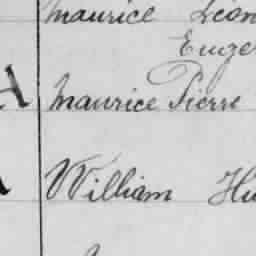 Maurice Léon
Euge
Maurice Pierre
William Hu